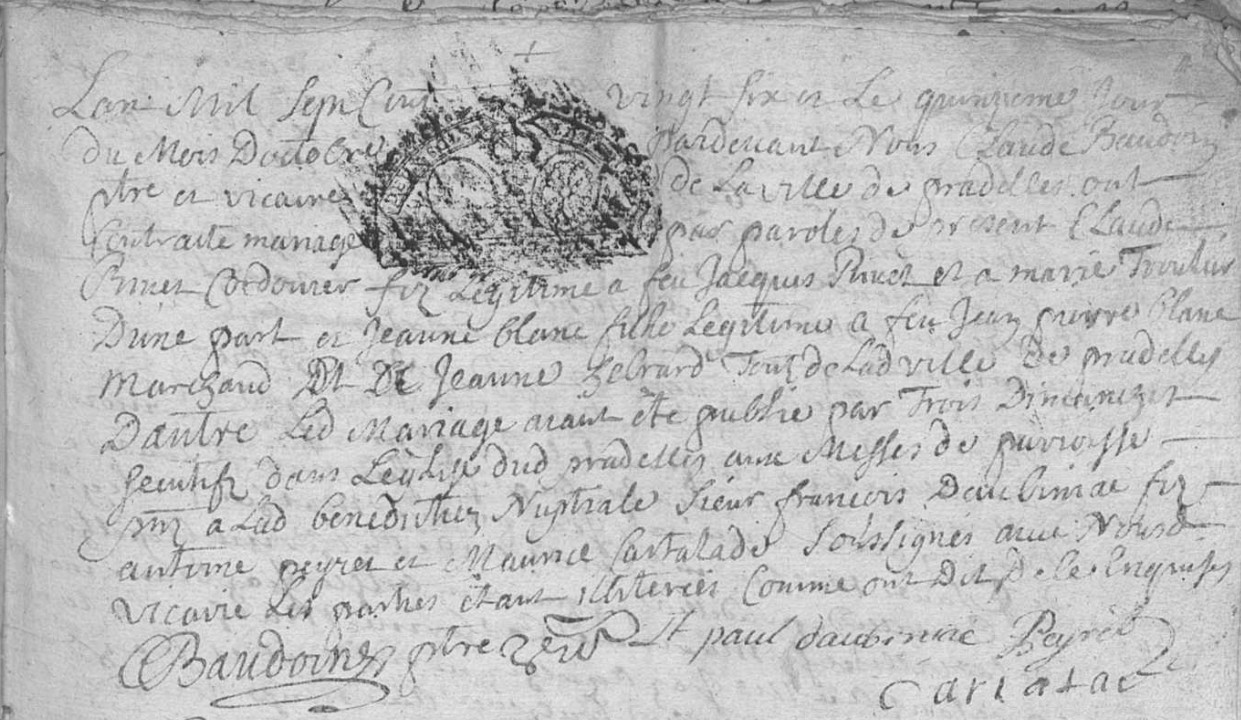 Lan Mil Sept Cent vingt six et Le quinzieme Jour
du Mois Doctobre pardevant Nous Claude Baudoin
ptre et vicaire de La ville de pradelles ont
Contracté mariage par paroles de present Claude
Pinet Cordonier fiz Legitime a feu Jacques Pinet et a marie
Dune part et Jeanne blanc fille Legitime a feu Jean pierre blanc
Marchand Et De Jeanne hebrard Tous de Lad ville De pradelles
Dautre Led Mariage aiant été publié par Trois Dimanches
secutifz dans Leglise dud pradelles aux Messes de parroisse
a Lad benediction Nuptiale Sieur francois Daubiniac fiz
antoine peyret et Maurice Cartalade Soussignés avec Nousd
vicaire Les parties étant illiterées Comme ont Dit De Ce Enquises
Baudoin ptre St paul daubiniac Peyret
Cartalad